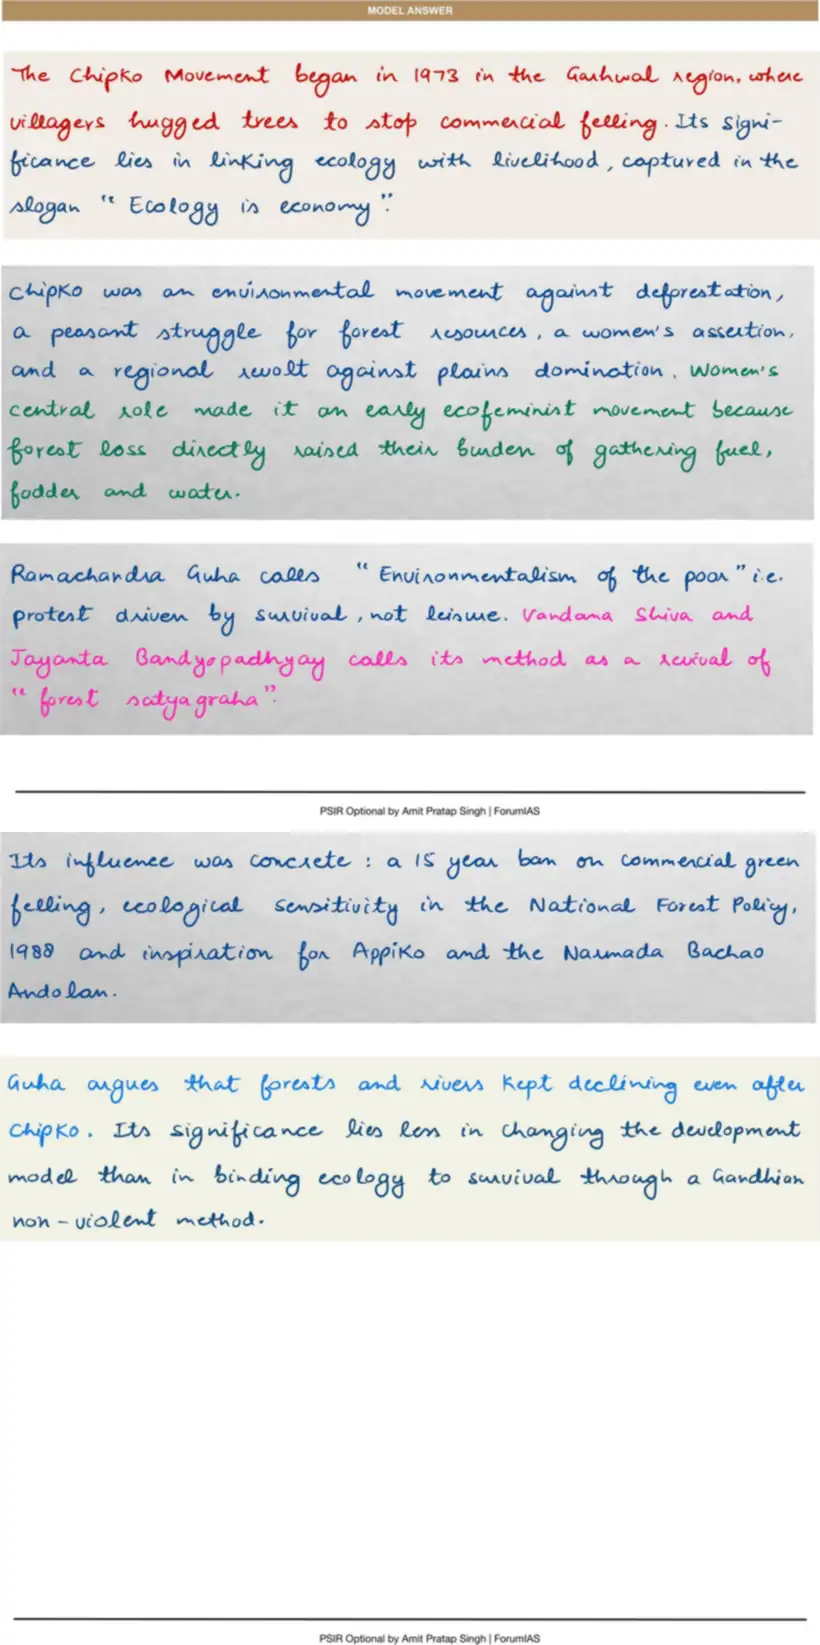 MODEL ANSWER
The Chipko Movement began in 1973 in the Garhwal region, where
villagers hugged trees to stop commercial felling. Its signi-
ficance lies in linking ecology with livelihood, captured in the
slogan "Ecology is economy".
Chipko was an environmental movement against deforestation,
a peasant struggle for forest resources, a women's assertion,
and a regional revolt against plains domination. Women's
central role made it an early ecofeminist movement because
forest loss directly raised their burden of gathering fuel,
fodder and water.
Ramachandra Guha calls "Environmentalism of the poor" i.e.
protest driven by survival, not leisure. Vandana Shiva and
Jayanta Bandyopadhyay calls its method as a revival of
"forest satyagraha".
PSIR Optional by Amit Pratap Singh | ForumIAS
Its influence was concrete : a 15 year ban on commercial green
felling, ecological sensitivity in the National Forest Policy,
1988 and inspiration for Appiko and the Narmada Bachao
Andolan.
Guha argues that forests and rivers kept declining even after
Chipko. Its significance lies less in changing the development
model than in binding ecology to survival through a Gandhian
non-violent method.
PSIR Optional by Amit Pratap Singh | ForumIAS